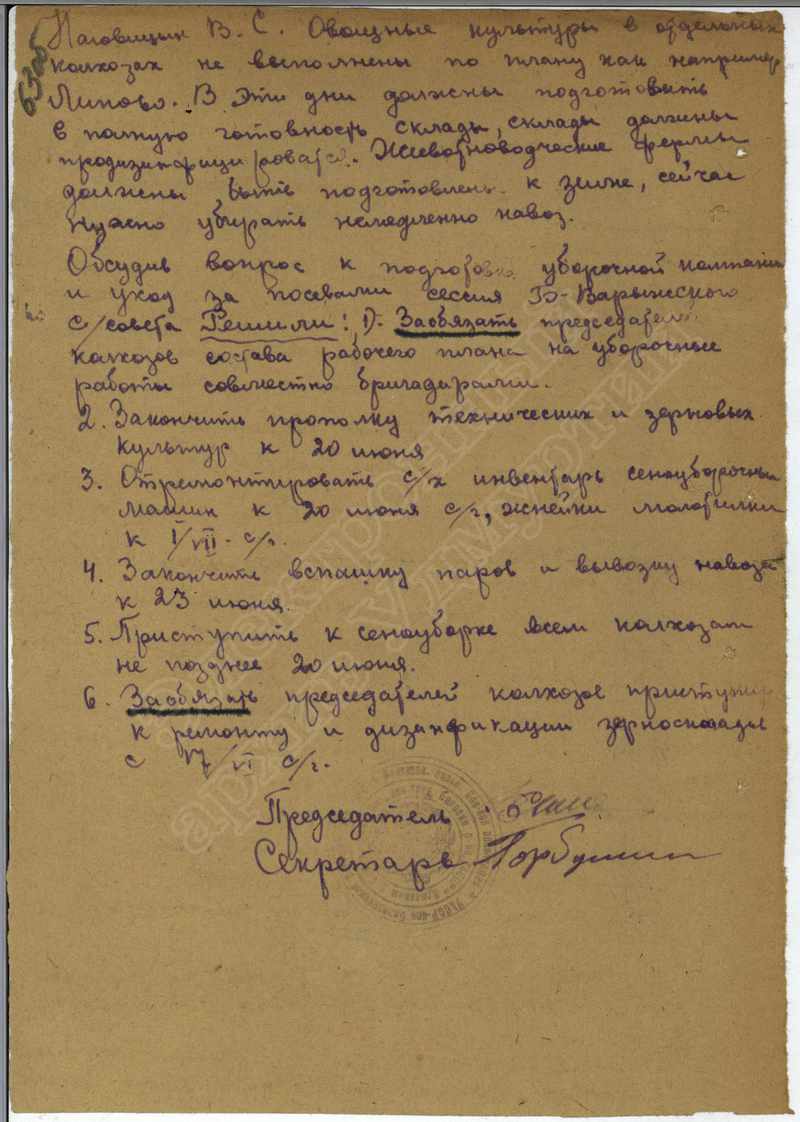 Наговицын В. С. Овощные культуры в отдельных
колхозах не выполнены по плану как например
Липово. В эти дни должны подготовить
в полную готовность склады, склады должны
продизинфицироватся. Животноводческие фермы
должны быть подготовлены к зиме, сейчас
нужно убирать немедленно навоз.
Обсудив вопрос к подготовке уборочной компании
и уход за посевами сессия Б-Варыжского
с/совета Решили: 1). Заобязать председателей
колхозов состава рабочего плана на уборочные
работы совместно бригадирами.
2. Закончить прополку технических и зерновых
культур к 20 июня
3. Отремонтировать с/х инвентарь сеноуборочных
машин к 20 июня с/г, жнейки молотилки
к I/VII - с/г.
4. Закончить вспашку паров и вывозку навоза
к 23 июня.
5. Приступить к сеноуборке всем колхозам
не позднее 20 июня.
6. Заобязать председателей колхозов приступить
к ремонту и дизинфикации зерносклады
с 17/VI с/г.
Председатель
Секретарь Горбушин